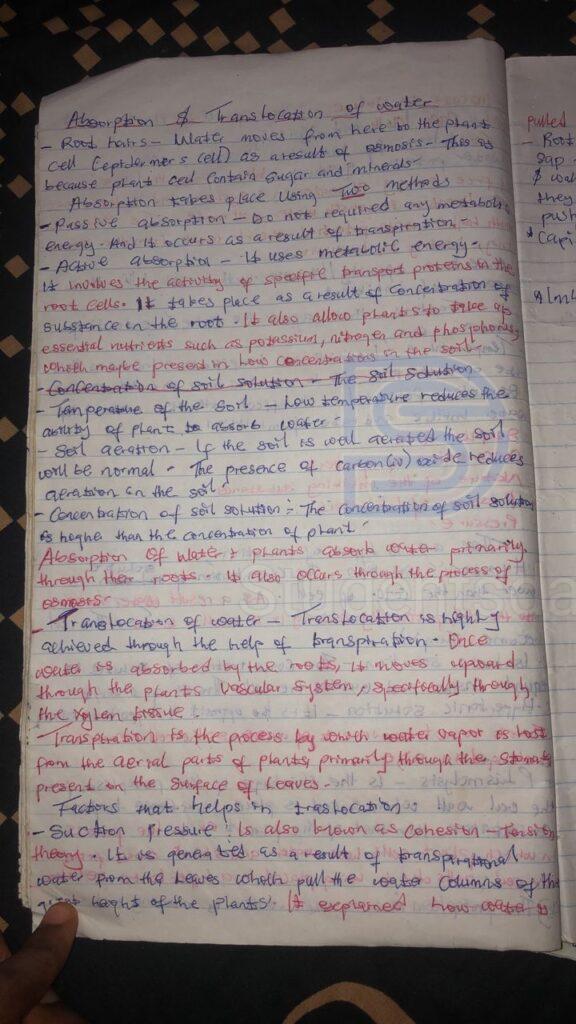 Absorption & Translocation of water
- Root hairs - Water moves from here to the plant
cell (epidermer's cell) as a result of osmosis - This is
because plant cell contain sugar and minerals -
Absorption takes place using Two methods
- Passive absorption - Do not required any metabolic
energy. And it occurs as a result of transpiration -
- Active absorption - It uses metabolic energy -
It involves the activity of specific transport proteins in the
root cells. It takes place as a result of concentration of
substance in the root. It also allow plants to take up
essential nutrients such as potassium, nitrogen and phosphorus,
which maybe present in low concentrations in the soil -
- Concentration of soil solution - The soil solution
- Temperature of the soil - Low temperature reduces the
ability of plant to absorb water -
- Soil aeration - If the soil is well aerated the soil
will be normal - The presence of carbon(iv) oxide reduces
aeration in the soil
- Concentration of soil solution :- The concentration of soil solution
is highe than the concentration of plant -
Absorption of water : plants absorb water primarily
through their roots. It also occurs through the process of
osmosis -
- Translocation of water - Translocation is highly
achieved through the help of transpiration. Once
water is absorbed by the roots, it moves upward
through the plants vascular system, specifically through
the xylem tissue.
- Transpiration is the process by which water vapor is lost
from the aerial parts of plants, primarily through the stomata
present on the surface of leaves -
Factors that helps in traslocation
- Suction Pressure : Is also known as cohesion - Tension
theory. It is generated as a result of transpirational
water from the leaves which pull the water columns of the
height of the plants. It explained how water is
pulled
- Root
sap -
& wat
they
push
Capi